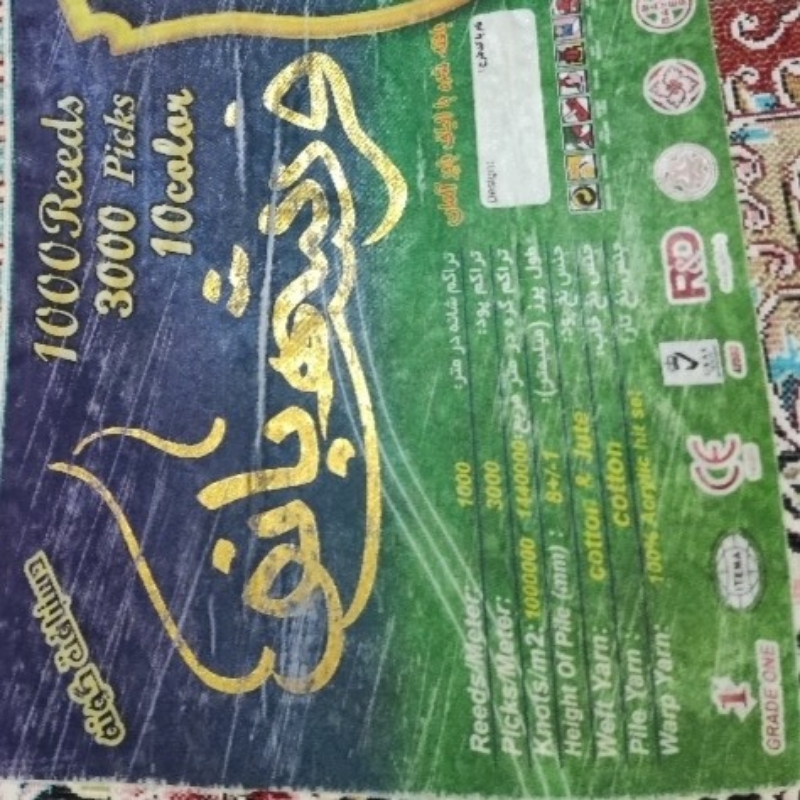 1000 Reeds
3000 Picks
10 color
فرش شهبانو
دستبافت گونه
بافته شده با الیاف برتر آلمان
Design:
Reeds/Meter: 1000 تراکم شانه در متر:
Picks/Meter: 3000 تراکم پود:
Knots/m2: 1000000 تراکم گره در متر مربع
Height Of Pile (mm) : 8+/-1 طول پرز (میلیمتر)
Weft Yarn: cotton & Jute جنس نخ پود:
Pile Yarn : cotton
Warp Yarn: 100% Acrylic hit set جنس نخ تار:
R&D
CE
ITEMA
1
GRADE ONE